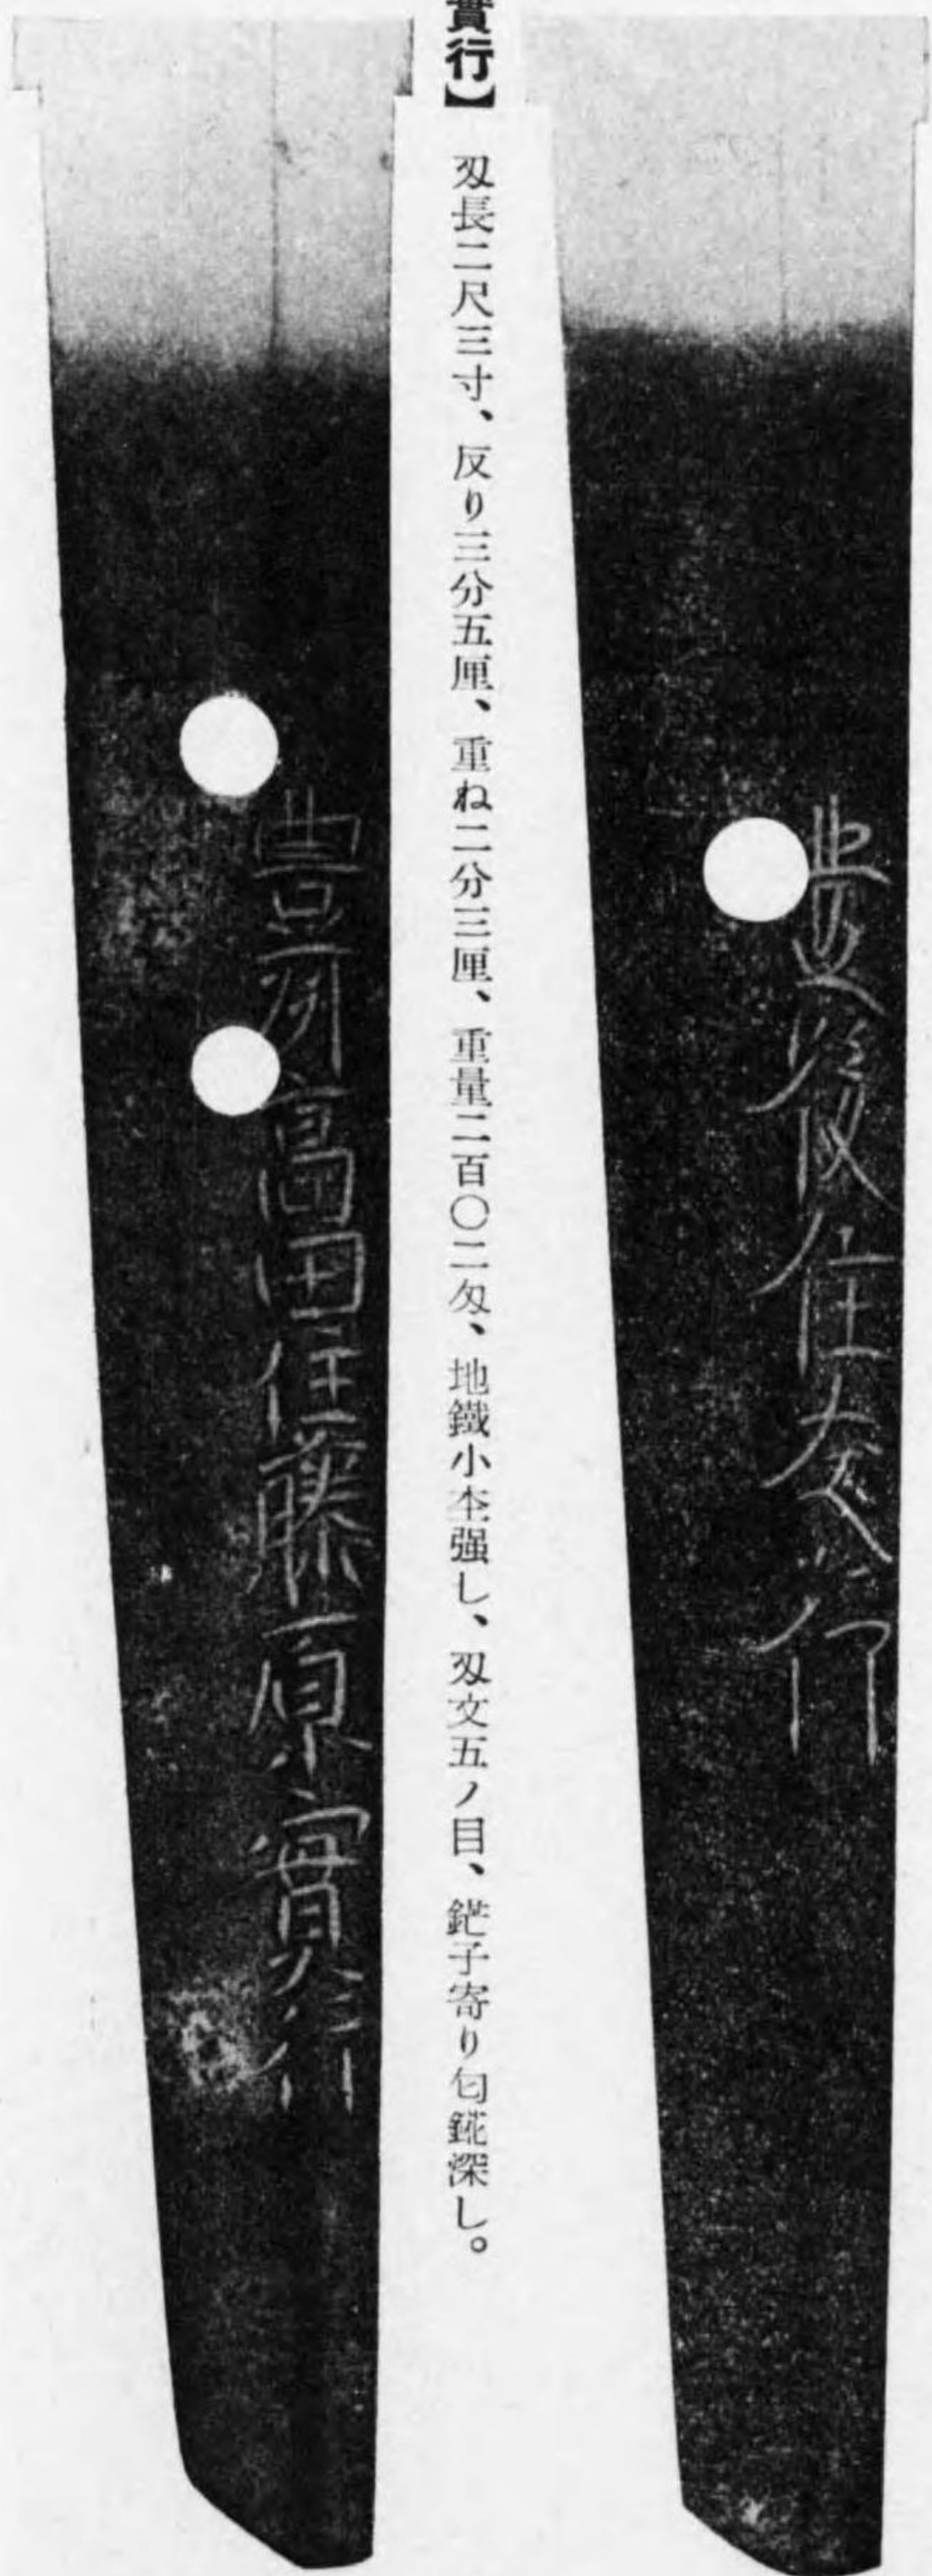 豊後住友行
實行】 刄長二尺三寸、反り三分五厘、重ね二分三厘、重量二百〇二匁、地鐵小杢强し、刄文五ノ目、鋩子寄り匂錵深し。
豊州高田住藤原實行